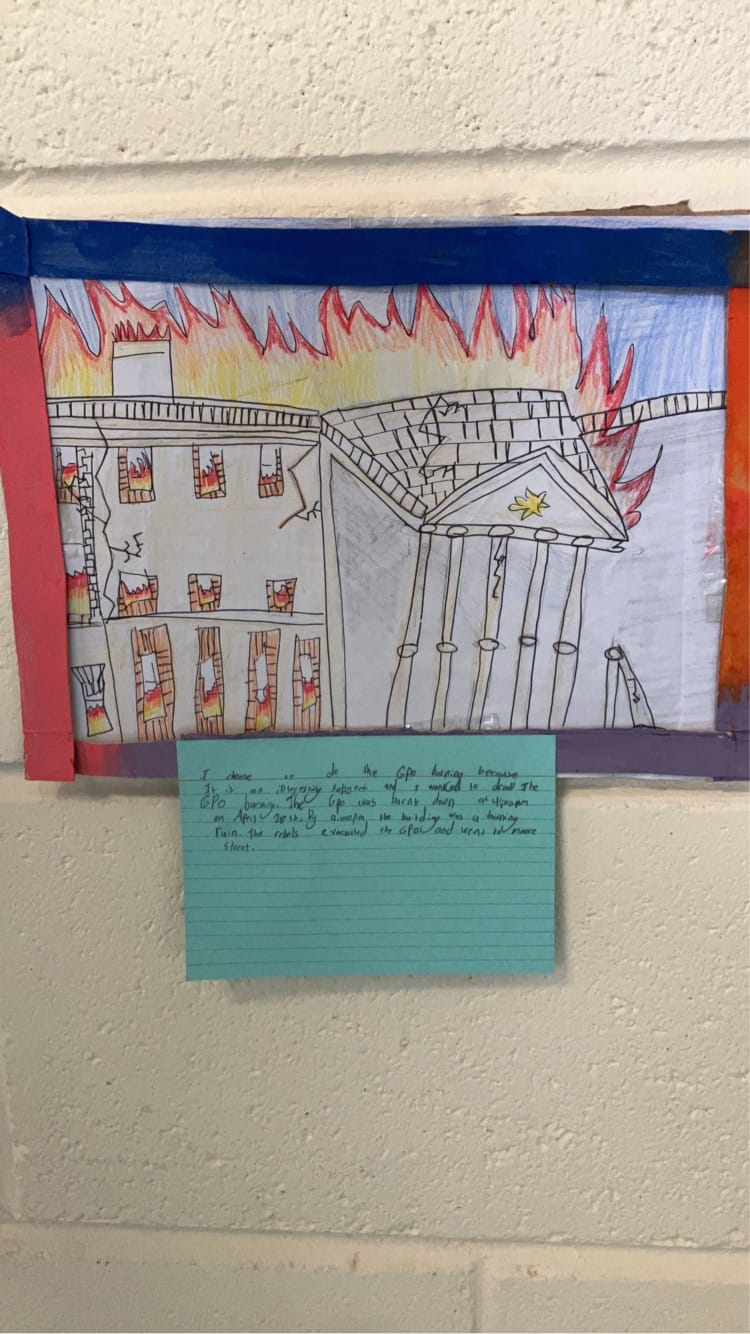 I chose to do the GPO burning because
It is an interesting subject and I wanted to draw The
GPO burning. The Gpo was burnt down at
on April 28th. By 9:00pm, the building was a burning
ruin. The rebels evacuated the GPO and went to moore
street.